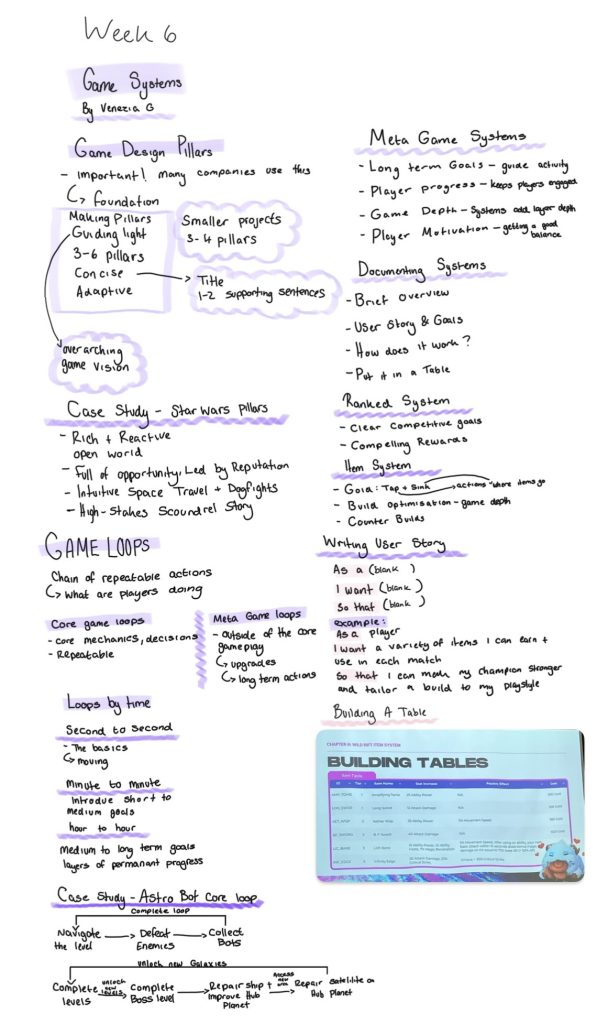 Week 6
Game Systems
By Venezia G
Game Design Pillars
- Important! Many companies use this
↳ foundation
Making Pillars
Guiding light
3-6 pillars
Concise
Adaptive
Smaller projects
3-4 pillars
→ Title
1-2 supporting sentences
overarching
game vision
Case Study - Star Wars Pillars
- Rich + Reactive
open world
- Full of opportunity, Led by Reputation
- Intuitive Space Travel + Dogfights
- High-Stakes Scoundrel Story
GAME LOOPS
Chain of repeatable actions
↳ What are players doing
Core game loops
- core mechanics, decisions
- Repeatable
Meta Game loops
- outside of the core
gameplay
↳ upgrades
↳ long term actions
Loops by time
Second to second
- The basics
↳ moving
Minute to minute
Introdue short to
medium goals
hour to hour
Medium to long term goals
layers of permanant progress
Case Study - Astro Bot Core loop
Complete loop
Navigate
the level → Defeat
Enemies → Collect
Bots
Unlock new Galaxies
Complete
levels
unlock
new
levels
Complete
Boss level
→ Repair ship +
improve Hub
Planet
Access
new
area
Repair satellite on
Hub planet
Meta Game Systems
- Long term Goals - guide activity
- Player progress - keeps players engaged
- Game Depth - Systems add layer depth
- Player Motivation - getting a good
balance
Documenting Systems
- Brief overview
- User Story & Goals
- How does it work?
- Put it in a Table
Ranked System
- Clear Competitive goals
- Compelling Rewards
Item System
- Gold: Tap + Sink → actions "where items go
- Build Optimisation - game depth
- Counter Builds
Writing User Story
As a (blank )
I want (blank )
So that (blank )
example:
As a player
I want a variety of items I can earn +
use in each match
So that I can make my champion stronger
and tailor a build to my playstyle
Building A Table
BUILDING TABLES